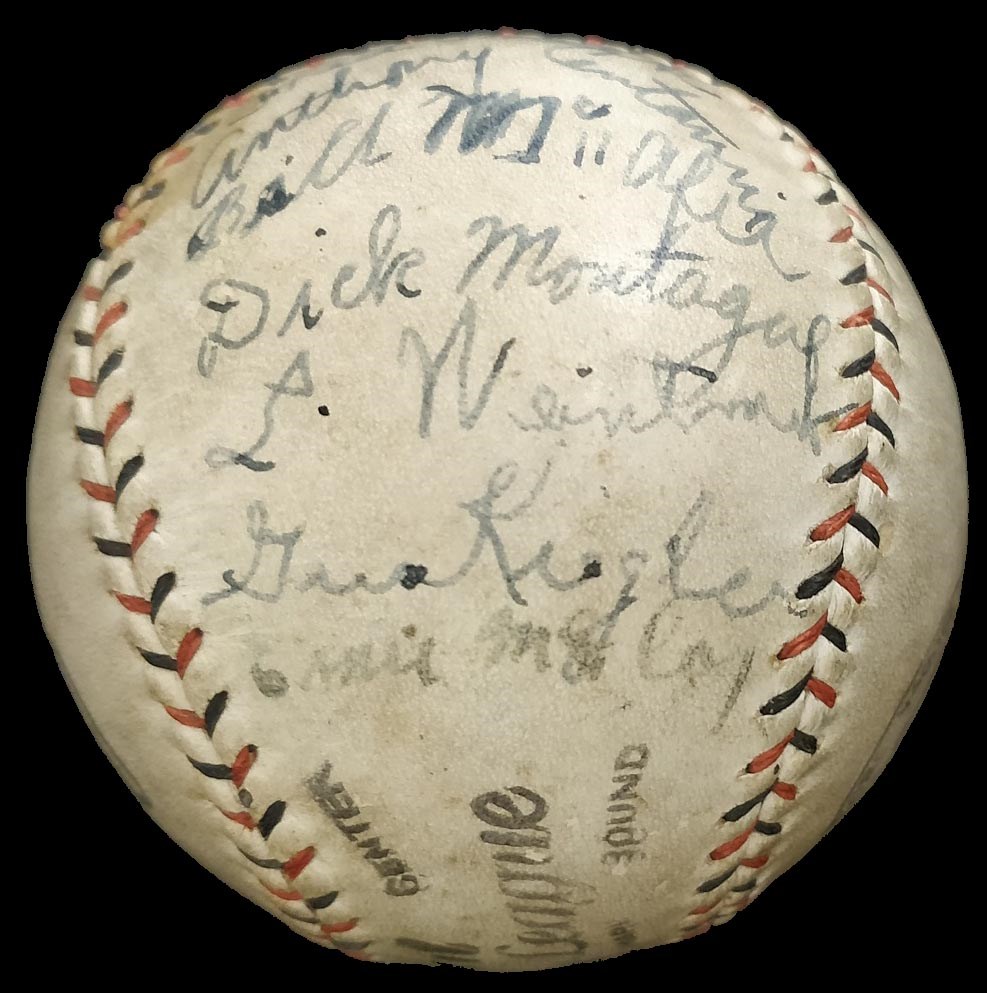 Anthony
Bill
Dick Montague
L. Weintraub
Gus Kiegler
Ernie McCoy
CENTER
League
WOUND